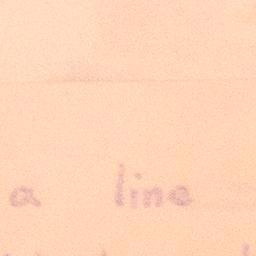 a line